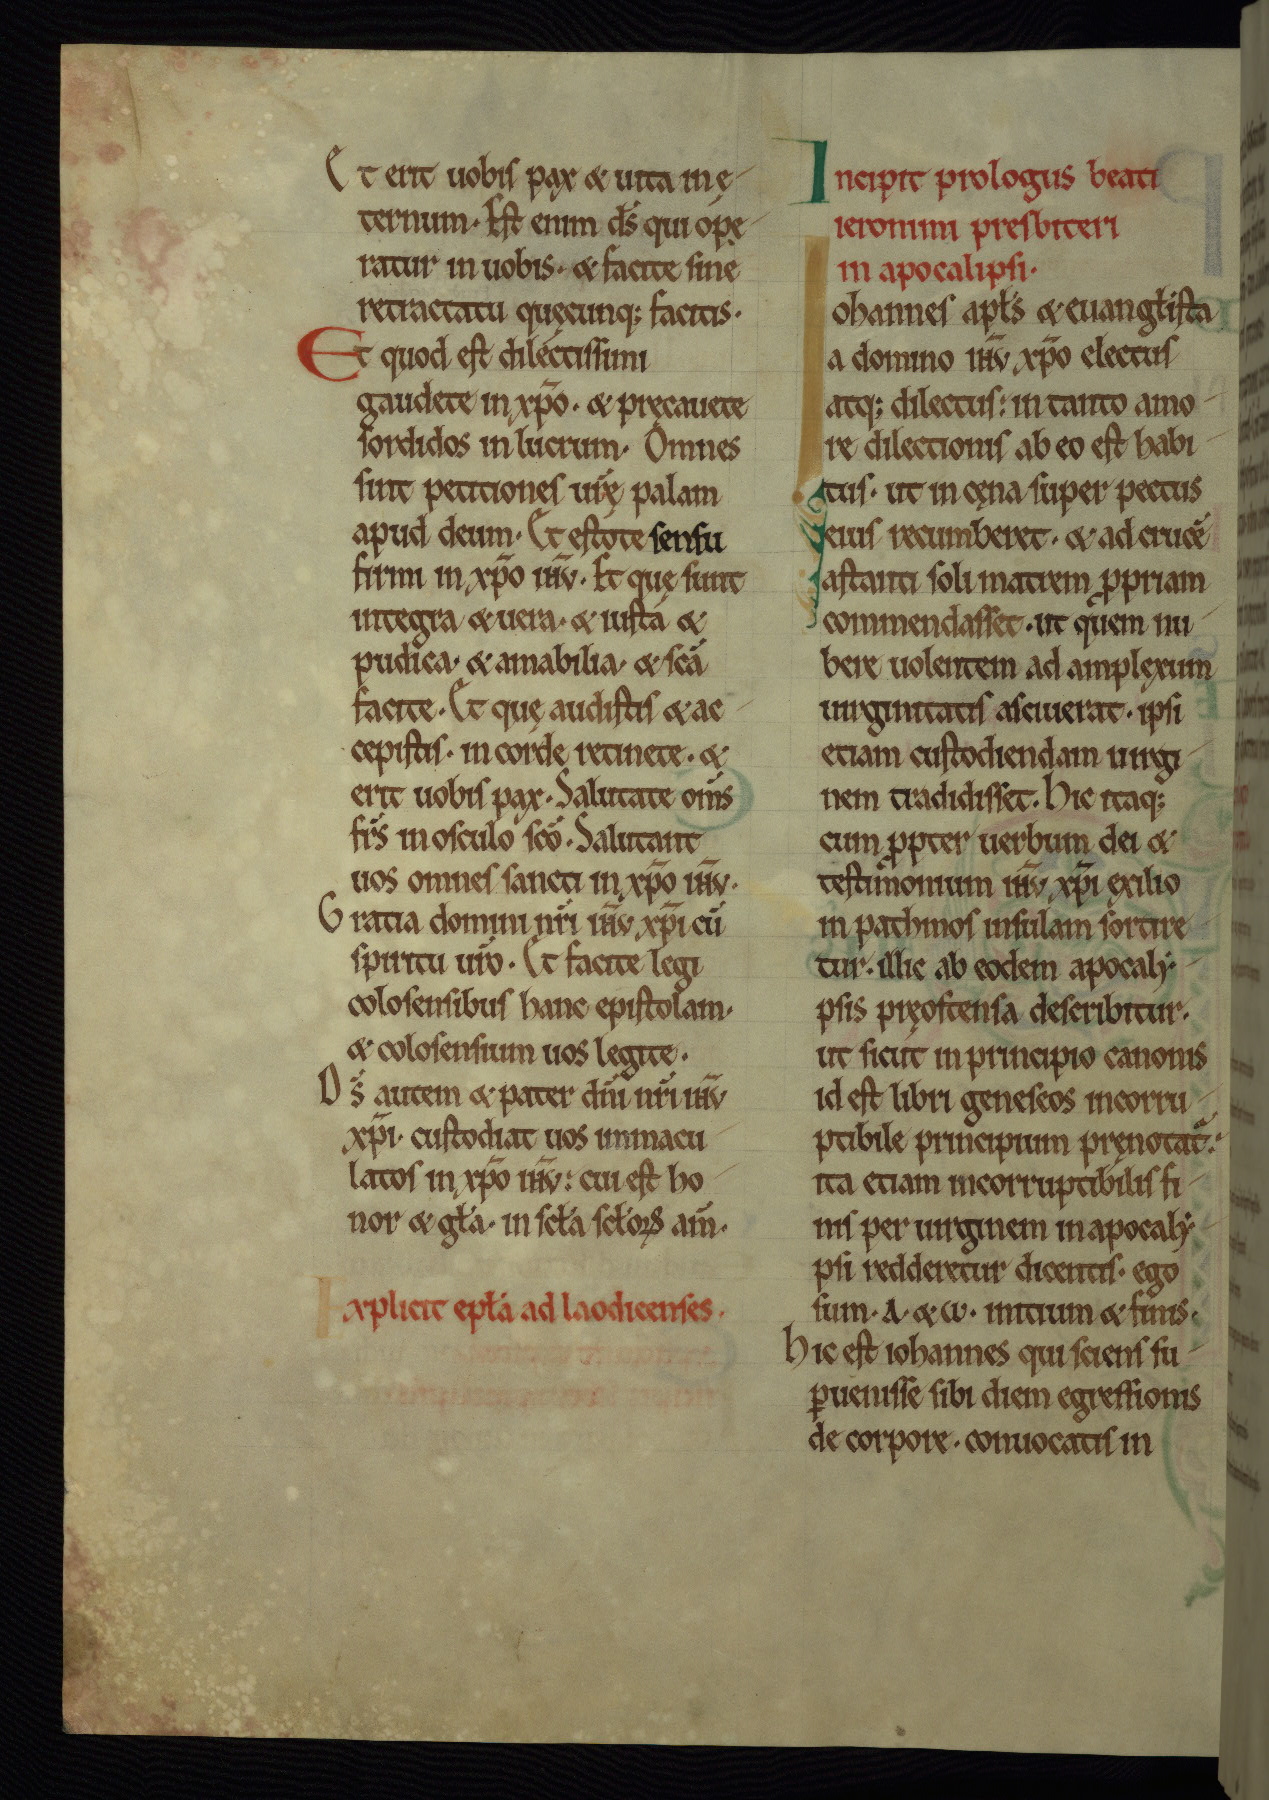 Et erit uobis pax & uita in ę
ternum. Est enim ds̄ qui ope
ratur in uobis. & facite sine
retractatu quęcunq; facitis.
Et quod est dilectissimi
gaudete in xp̄o. & pręcauete
sordidos in lucrum. Omnes
sint petitiones ur̄ę palam
apud deum. Et estote sensu
firmi in xp̄o ih̄u. Et quę sunt
integra & uera. & iusta &
pudica. & amabilia. & sc̄a
facite. Et quę audistis & ac
cepistis. in corde retinete. &
erit uobis pax. Salutate om̄s
fr̄s in osculo sc̄o. Salutant
uos omnes sancti in xp̄o ih̄u.
Gratia domini nr̄i ih̄u xp̄i cū
spiritu ur̄o. Et facite legi
colosensibus hanc epistolam.
& colosensium uos legite.
Ds̄ autem & pater dn̄i nr̄i ih̄u
xp̄i. custodiat uos immacu
latos in xp̄o ih̄u: cui est ho
nor & gła. in scła scłoꝝ am̄.
Explicit epła ad laodicenses.
Incipit prologus beati
ieronimi presbiteri
in apocalipsi.
Iohannes apłs & euangłista
a domino ih̄u xp̄o electus
atq; dilectus: in tanto amo
re dilectionis ab eo est habi
tus. ut in cęna super pectus
eius recumberet. & ad crucē
astanti soli matrem ꝓpriam
commendasset. ut quem nu
bere uolentem ad amplexum
uirginitatis asciuerat. ipsi
etiam custodiendam uirgi
nem tradidisset. Hic itaq;
cum ꝓpter uerbum dei &
testimonium ih̄u xp̄i exilio
in pathmos insulam sortire
tur. illic ab eodem apocaly
psis pręostensa describitur.
ut sicut in principio canonis
id est libri geneseos incorru
ptibile principium pręnotat̄:
ita etiam incorruptibilis fi
nis per uirginem in apocaly
psi redderetur dicentis. ego
sum. A. & ω. initium & finis.
Hic est iohannes qui sciens su
ꝑuenisse sibi diem egressionis
de corpore. conuocatis in